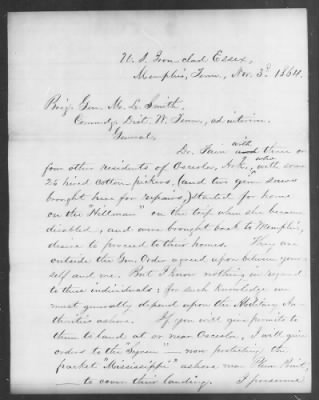 U. S. Iron-clad Essex,
Memphis, Tenn, Nov. 3d 1864.
Brig. Gen. M. L. Smith,
Commdg. Dist. W. Tenn., ad interim.
General,
Dr. Fain with three or
four other residents of Osceola, Ark., who, with some
25 hired cotton-pickers, (and two gin
brought here for repairs,) started for home
on the "Hillman" on the trip when she became
disabled, and were brought back to Memphis,
desire to proceed to their homes. They are
outside the Gen. Order agreed upon between your-
self and me. But I know nothing in regard
to these individuals; for such knowledge we
must generally depend upon the Military Au-
thorities ashore. If you will give permits to
them to land at or near Osceola, I will give
orders to the "Signal" — now protecting the
packet "Mississippi" ashore near Plum Point,
— to cover their landing. I presume